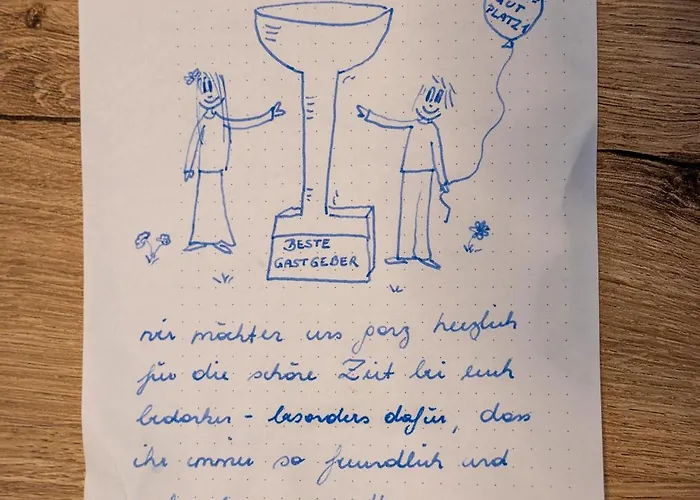 AUF
PLATZ 1
BESTE
GASTGEBER
wir möchten uns ganz herzlich
für die schöne Zeit bei euch
bedanken - besonders dafür, dass
ihr immer so freundlich und